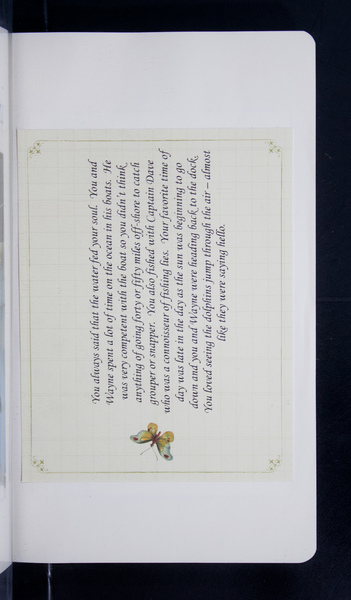 You always said that the water fed your soul. You and
Wayne spent a lot of time on the ocean in his boats. He
was very competent with the boat so you didn't think
anything of going forty or fifty miles off-shore to catch
grouper or snapper. You also fished with Captain Dave
who was a connoisseur of fishing lies. Your favorite time of
day was late in the day as the sun was beginning to go
down and you and Wayne were heading back to the dock.
You loved seeing the dolphins jump through the air – almost
like they were saying hello.